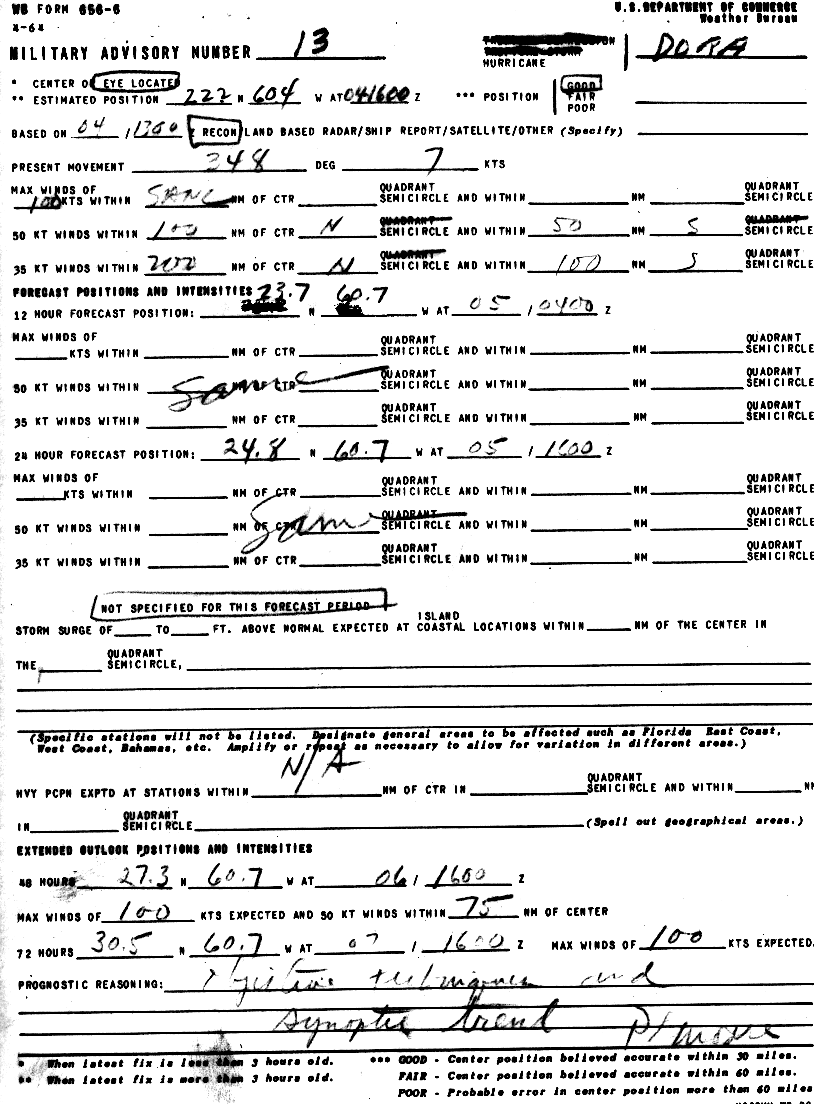 WB FORM 656-6
4-64
U.S. DEPARTMENT OF COMMERCE
Weather Bureau
MILITARY ADVISORY NUMBER 13
HURRICANE DORA
* CENTER OF EYE LOCATED
** ESTIMATED POSITION 222 N 604 W AT 041600 Z *** POSITION GOOD FAIR POOR
BASED ON 04 / 1300 Z RECON/LAND BASED RADAR/SHIP REPORT/SATELLITE/OTHER (Specify)
PRESENT MOVEMENT 348 DEG 7 KTS
MAX WINDS OF QUADRANT QUADRANT
100 KTS WITHIN SAME NM OF CTR SEMICIRCLE AND WITHIN NM SEMICIRCLE
QUADRANT QUADRANT
50 KT WINDS WITHIN 100 NM OF CTR N SEMICIRCLE AND WITHIN 50 NM S SEMICIRCLE
QUADRANT
35 KT WINDS WITHIN 200 NM OF CTR N SEMICIRCLE AND WITHIN 100 NM S SEMICIRCLE
FORECAST POSITIONS AND INTENSITIES
12 HOUR FORECAST POSITION: 23.7 N 60.7 W AT 05 / 0400 Z
MAX WINDS OF QUADRANT QUADRANT
KTS WITHIN NM OF CTR SEMICIRCLE AND WITHIN NM SEMICIRCLE
QUADRANT QUADRANT
50 KT WINDS WITHIN Same NM OF CTR SEMICIRCLE AND WITHIN NM SEMICIRCLE
QUADRANT QUADRANT
35 KT WINDS WITHIN NM OF CTR SEMICIRCLE AND WITHIN NM SEMICIRCLE
24 HOUR FORECAST POSITION: 24.8 N 60.7 W AT 05 / 1600 Z
MAX WINDS OF QUADRANT QUADRANT
KTS WITHIN NM OF CTR SEMICIRCLE AND WITHIN NM SEMICIRCLE
QUADRANT QUADRANT
50 KT WINDS WITHIN NM OF CTR Same SEMICIRCLE AND WITHIN NM SEMICIRCLE
QUADRANT QUADRANT
35 KT WINDS WITHIN NM OF CTR SEMICIRCLE AND WITHIN NM SEMICIRCLE
NOT SPECIFIED FOR THIS FORECAST PERIOD
ISLAND
STORM SURGE OF TO FT. ABOVE NORMAL EXPECTED AT COASTAL LOCATIONS WITHIN NM OF THE CENTER IN
QUADRANT
THE SEMICIRCLE,
(Specific stations will not be listed. Designate general areas to be affected such as Florida East Coast,
West Coast, Bahamas, etc. Amplify or repeat as necessary to allow for variation in different areas.)
N/A
QUADRANT
HVY PCPN EXPTD AT STATIONS WITHIN NM OF CTR IN SEMICIRCLE AND WITHIN NM
QUADRANT
IN SEMICIRCLE (Spell out geographical areas.)
EXTENDED OUTLOOK POSITIONS AND INTENSITIES
48 HOURS 27.3 N 60.7 W AT 06 / 1600 Z
MAX WINDS OF 100 KTS EXPECTED AND 50 KT WINDS WITHIN 75 NM OF CENTER
72 HOURS 30.5 N 60.7 W AT 07 / 1600 Z MAX WINDS OF 100 KTS EXPECTED.
PROGNOSTIC REASONING: techniques and
synoptic trend
* When latest fix is less than 3 hours old. *** GOOD - Center position believed accurate within 30 miles.
** When latest fix is more than 3 hours old. FAIR - Center position believed accurate within 60 miles.
POOR - Probable error in center position more than 60 miles